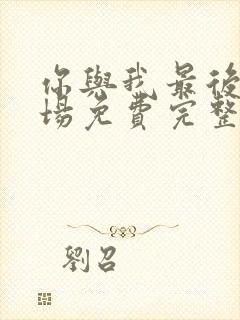 你與我最後
場免費完整
劉召